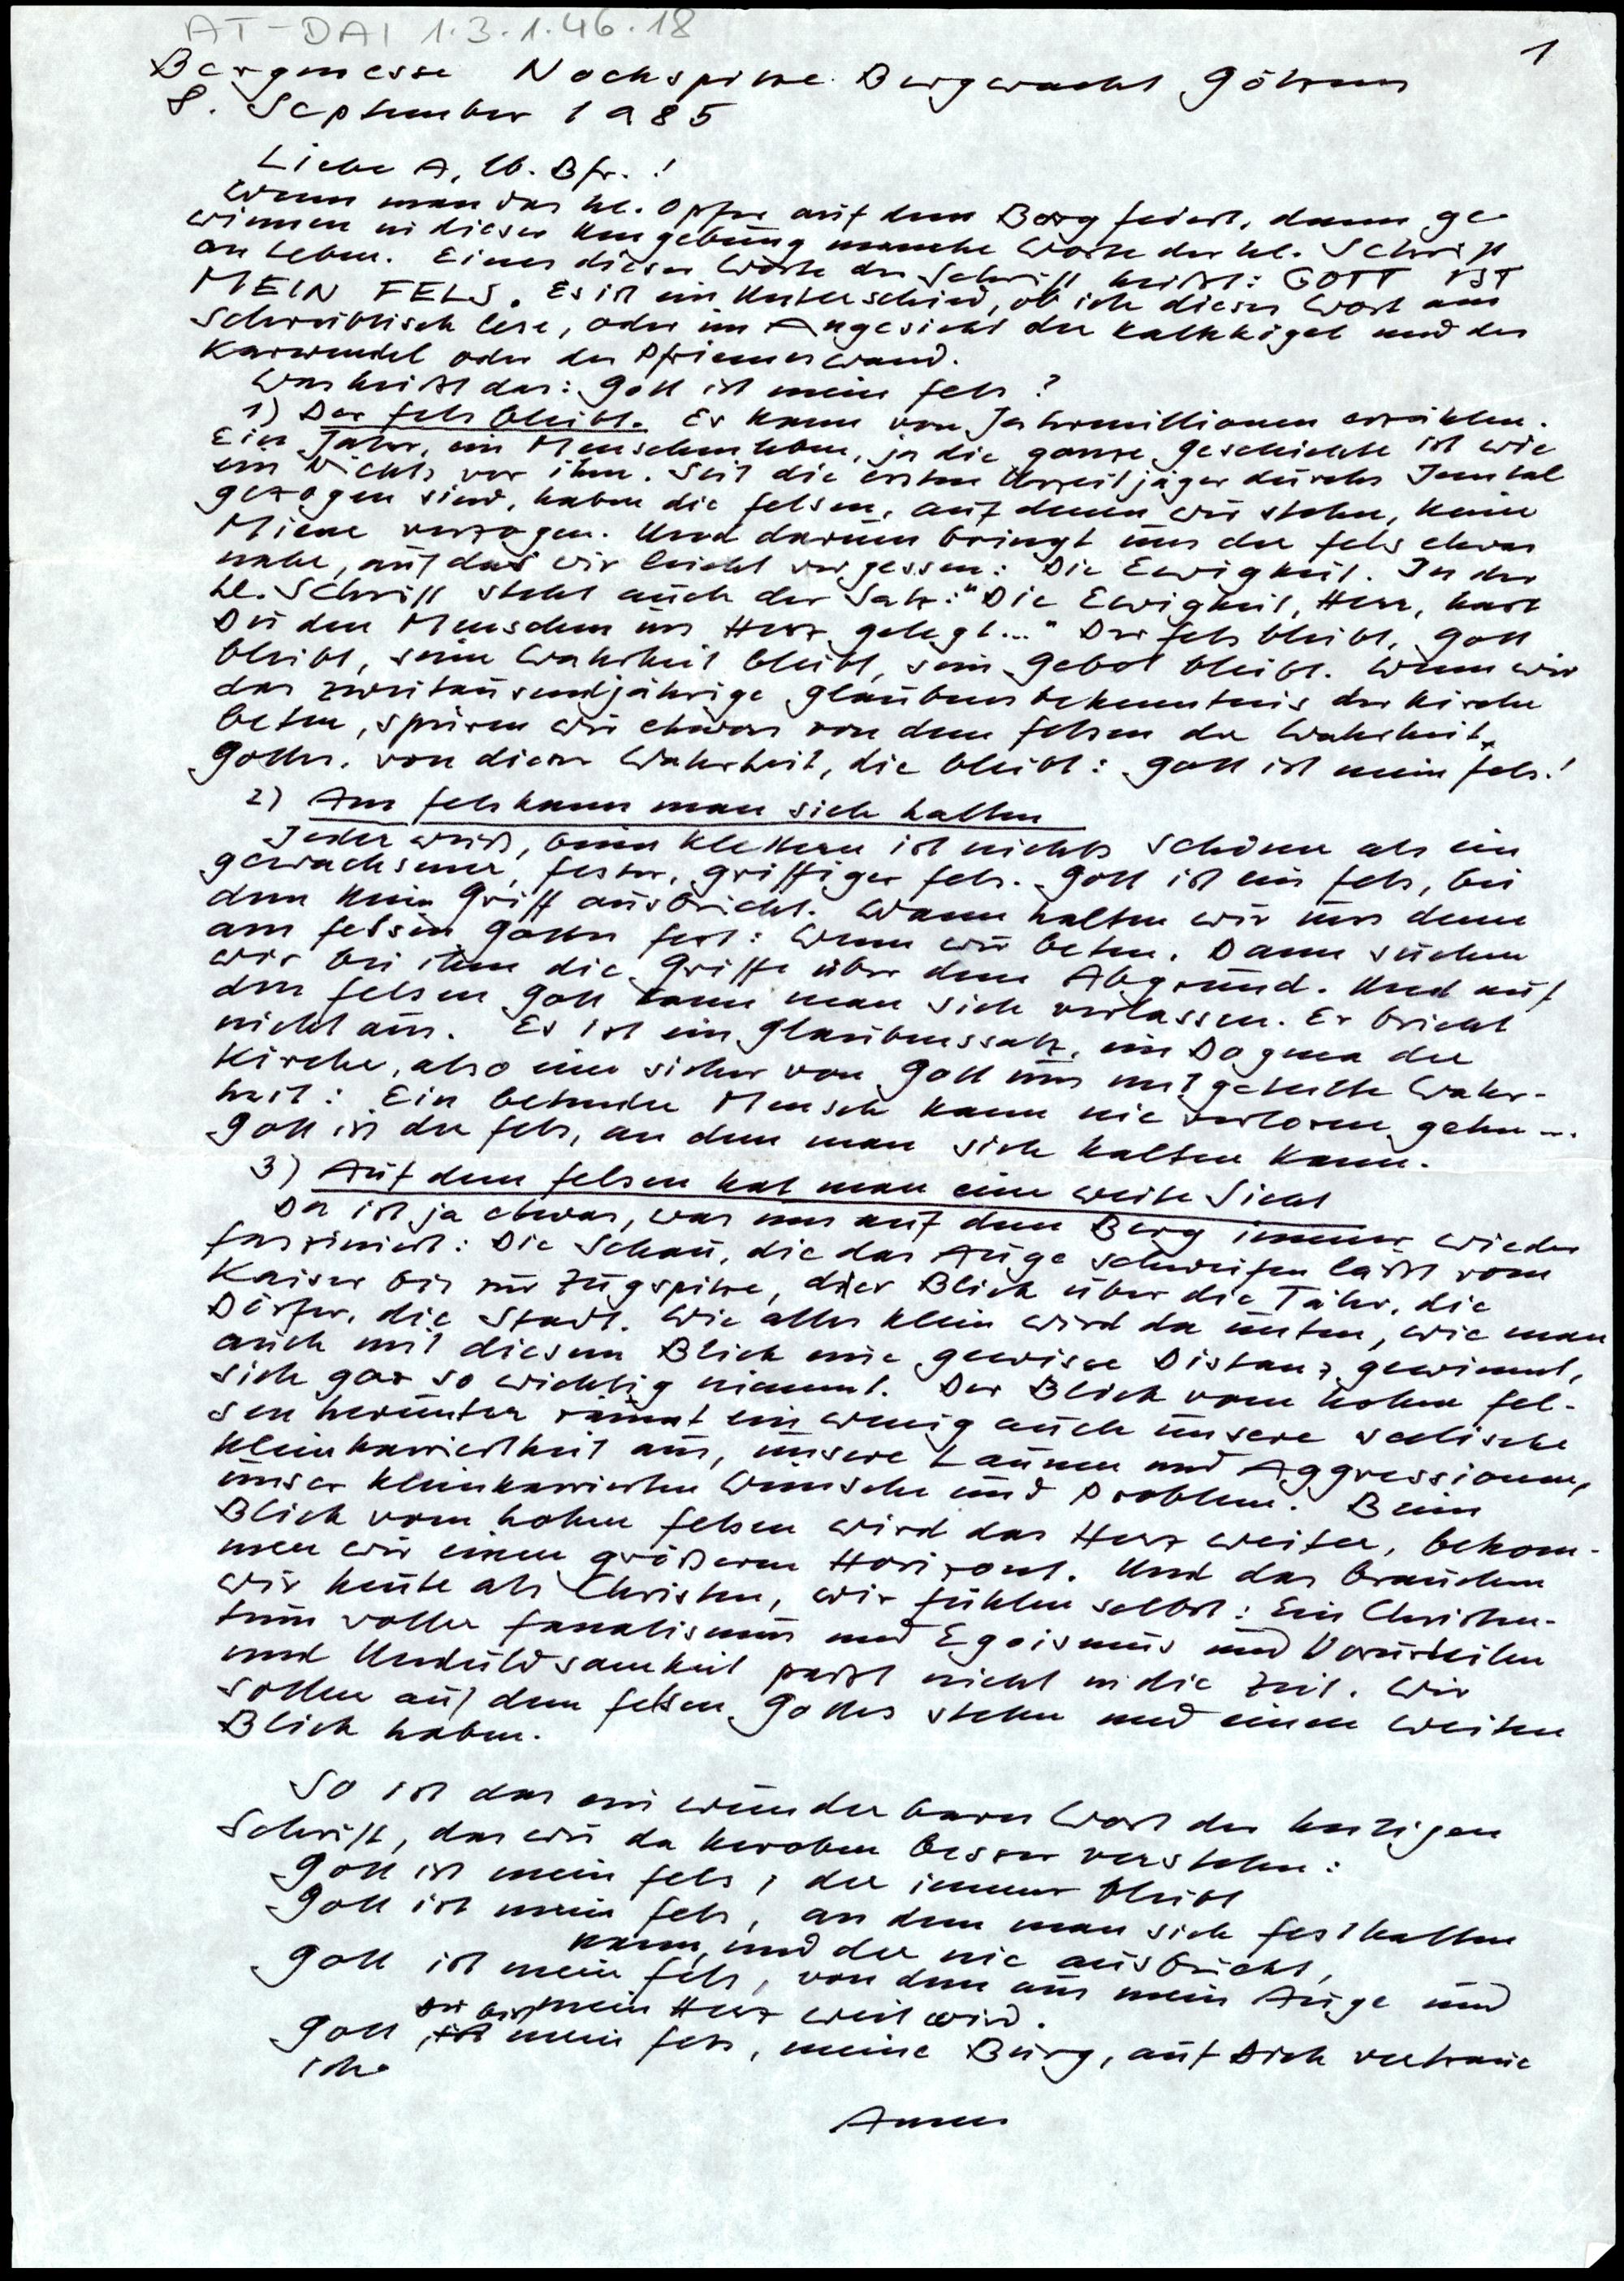 AT-DAI 1.3.1.46.18
1
Bergmesse Nockspitze Bergwacht Götzens
8. September 1985
Liebe A, lb. Bfr.!
Wenn man das hl. Opfer auf dem Berg feiert, dann ge-
winnen in dieser Umgebung manche Worte der hl. Schrift
an Leben. Eines dieser Worte der Schrift heißt: GOTT IST
MEIN FELS. Es ist ein Unterschied, ob ich dieses Wort am
Schreibtisch lese, oder im Angesicht der Kalkkögel und des
Karwendel oder der Pfriemeswand.
Was heißt das: Gott ist mein Fels?
1) Der Fels bleibt. Er kann von Jahrmillionen erzählen.
Ein Jahr, ein Menschenleben, ja die ganze Geschichte ist wie
ein Nichts vor ihm. Seit die ersten Urzeitjäger durchs Inntal
gezogen sind, haben die Felsen, auf denen wir stehen, keine
Miene verzogen. Und darum bringt uns der Fels etwas
nahe, auf das wir leicht vergessen: Die Ewigkeit. In der
hl. Schrift steht auch der Satz: "Die Ewigkeit, Herr, hast
Du den Menschen ins Herz gelegt..." Der Fels bleibt, Gott
bleibt, seine Wahrheit bleibt, sein Gebot bleibt. Wenn wir
das zweitausendjährige Glaubensbekenntnis der Kirche
beten, spüren wir etwas von dem Felsen der Wahrheit
Gottes. von dieser Wahrheit, die bleibt: Gott ist mein Fels!
2) Am Fels kann man sich halten
Jeder weiß, beim Klettern ist nichts schöner als ein
gewachsener, fester, griffiger Fels. Gott ist ein Fels, bei
dem kein Griff ausbricht. Wann halten wir uns denn
am Felsen Gottes fest: Wenn wir beten. Dann suchen
wir bei ihm die Griffe über dem Abgrund. Und auf
den Felsen Gott kann man sich verlassen. Er bricht
nicht aus. Es ist ein Glaubenssatz, ein Dogma der
Kirche, also eine sicher von Gott uns mitgeteilte Wahr-
heit: Ein betender Mensch kann nie verloren gehn...
Gott ist der Fels, an dem man sich halten kann.
3) Auf dem Felsen hat man eine weite Sicht
Das ist ja etwas, was uns auf dem Berg immer wieder
fasziniert: Die Schau, die das Auge schweifen läßt vom
Kaiser bis zur Zugspitze, der Blick über die Täler, die
Dörfer, die Stadt. Wie alles klein wird da unten, wie man
auch mit diesem Blick eine gewisse Distanz gewinnt,
sich gar so wichtig nimmt. Der Blick vom hohen Fel-
sen herunter räumt ein wenig auch unsere seelische
Kleinkarriertheit aus, unsere Launen und Aggressionen,
unser kleinkarrierten Wünsche und Probleme. Beim
Blick vom hohen Felsen wird das Herz weiter, bekom-
men wir einen größeren Horizont. Und das brauchen
wir heute als Christen, wir fühlen selbst: Ein Christen-
tum voller Fanatismus und Egoismus und Vorurteilen
und Unduldsamkeit paßt nicht in die Zeit. Wir
sollen auf dem Felsen Gottes stehen und einen weiten
Blick haben.
So ist das ein wunderbares Wort der heiligen
Schrift, das wir da heroben besser verstehen:
Gott ist mein Fels, der immer bleibt
Gott ist mein Fels, an dem man sich festhalten
kann, und der nie ausbricht,
Gott ist mein Fels, von dem aus mein Auge und
mein Herz weit wird.
Gott Du bist mein Fels, meine Burg, auf Dich vertraue
ich.
Amen